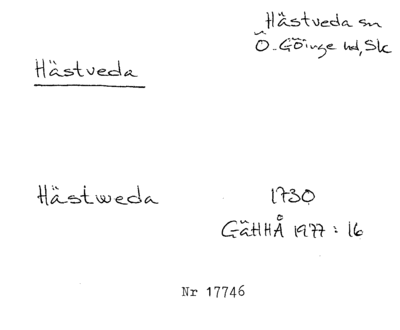 Hästveda sn
Ö. Göinge hd, Sk
Hästveda
Hästweda 1730
GäHHÅ 1977 : 16
Nr 17746